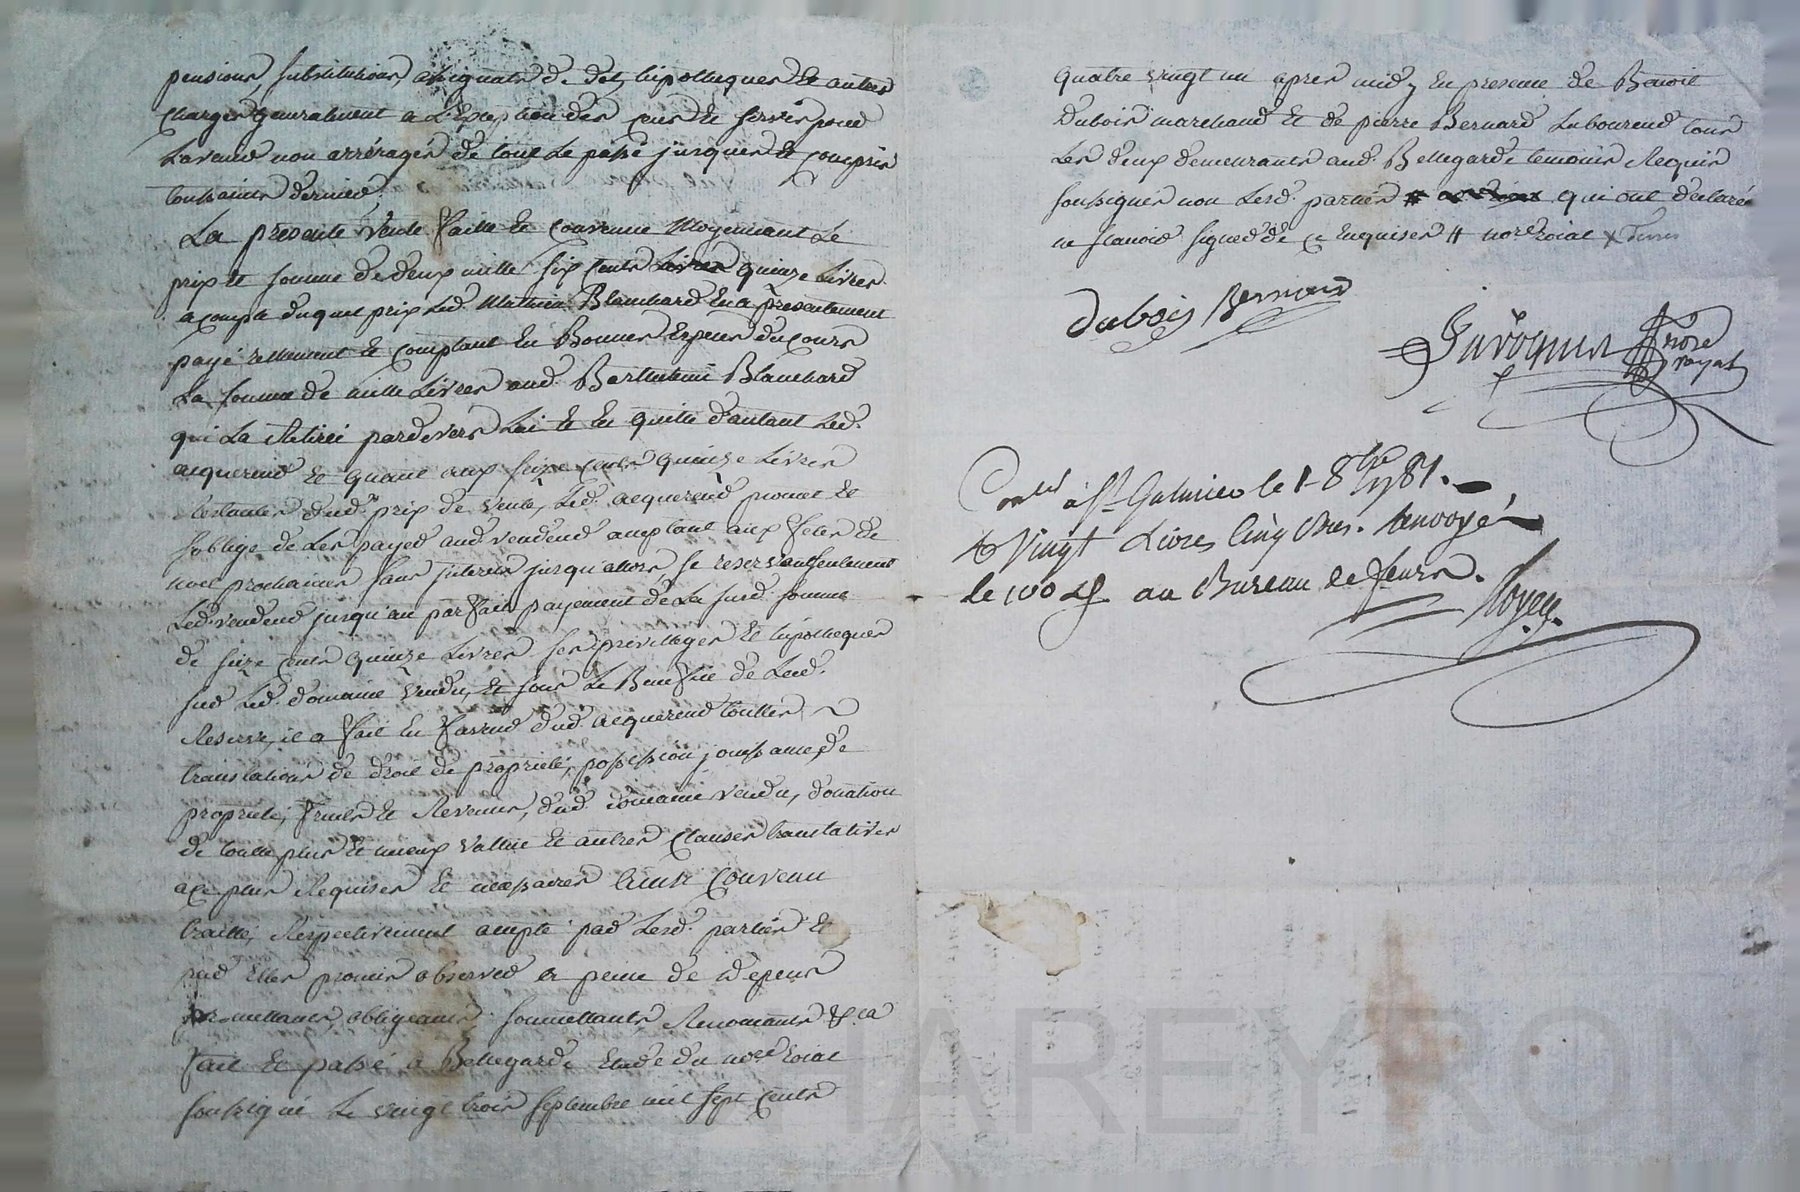 pensions, substitutions, assignats de dot, hipotheques et autres
charges generalement a L'Exception des cens et servis pour
Lavenir non arréragés de tout Le passé jusques et compris
toussaints dernier,
La presente vente faitte et convenue moyennant Le
prix et somme de deux mille six cents Livres quinze Livres
a compte duquel prix Led. Mathieu Blanchard En a presentement
payé reellement et comptant En Bonnes Especes du cours
La somme de mille Livres aud. Barthelemi Blanchard
qui La Retirée pardevers Lui et En quitte d'autant Led.
acquereur et quant aux seize cents quinze Livres
restantes dud. prix de vente, Led. acquereur promet et
s'oblige de Les payer aud. vendeur acceptant aux fetes de
noel prochaines sans interets jusqu'alors se reservant seulement
Led. vendeur jusqu'au parfait payement de La susd. somme
de seize cents quinze Livres ses privilleges et hipotheques
sur Led. domaine vendu, et sous Le Benefice de Lad.
Reserve, il a fait En faveur dud. acquereur touttes
translations de droit de propriété, possession jouissance de
propriete, fruits et Revenus, dud. domaine vendu, donation
de toutte plus et mieux vallue et autres clauses translatives
a ce plus Requises et necessaires ainsi convenu
traitté, Respectivement accepté par Lesd. parties et
par Elles promis observer a peine de depens
promettants, obligeants, soumettants, Renonçants &.ca
fait et passé a Bellegarde Etude du no.re Roial
soussigné Le vingt trois septembre mil sept cents
quatre vingt un apres midy En presence de Benoit
Dubois marchand et de pierre Bernard Laboureur tous
Les deux demeurants aud. Bellegarde temoins Requis
soussignés non Lesd. parties # qui ont declaré
ne scavoir signer de ce Enquises # no.re Roial
Dubois Bernard
Javogues no.re
royal
Con.lé à St. Galmier le 1 8bre 1781.
vingt Livres cinq sols. Renvoyé
le 100 d. au Bureau de feurs.